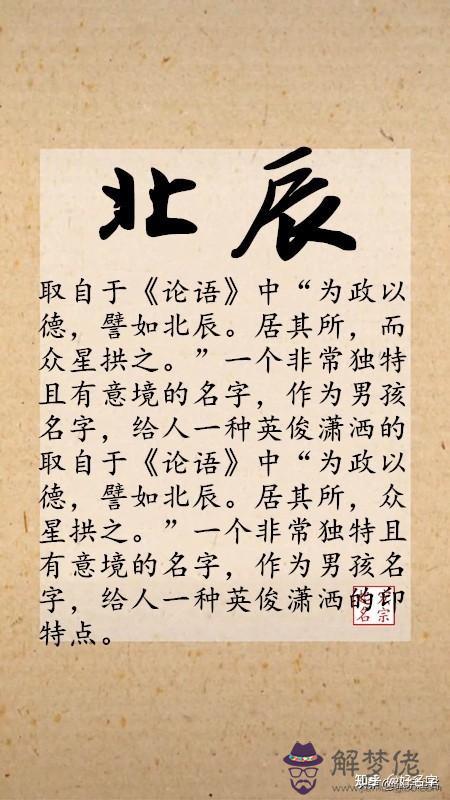 北辰
取自于《论语》中“为政以
德，譬如北辰。居其所，而
众星拱之。”一个非常独特
且有意境的名字，作为男孩
名字，给人一种英俊潇洒的
取自于《论语》中“为政以
德，譬如北辰。居其所，众
星拱之。”一个非常独特且
有意境的名字，作为男孩名
字，给人一种英俊潇洒的印
特点。
解梦佬